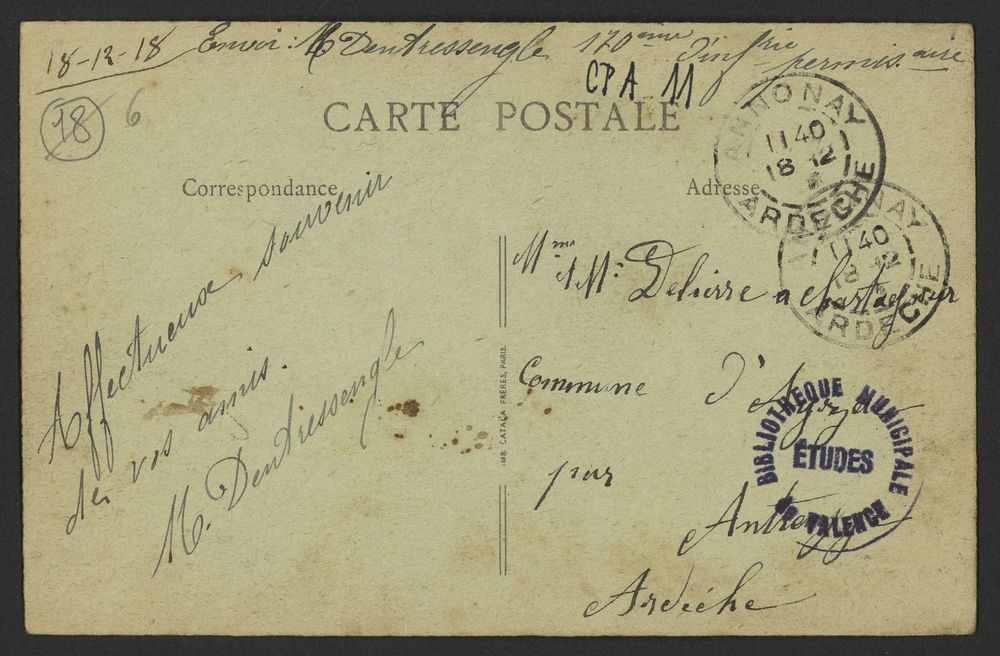 18-12-18 Envoi : M Dentressengle 170ème d'infrie permis.aire
CPA 11
18 6
CARTE POSTALE
Correspondance
Adresse
ANNONAY
11 40
18 12
ARDECHE
ANNONAY
11 40
18 12
ARDECHE
Affectueux souvenir
de vos amis.
M. Dentressengle
IMP. CATALA FRÈRES, PARIS
Mme & Mr Delierre a
Commune d'
par
Ardèche
BIBLIOTHÈQUE MUNICIPALE
ÉTUDES
DE VALENCE